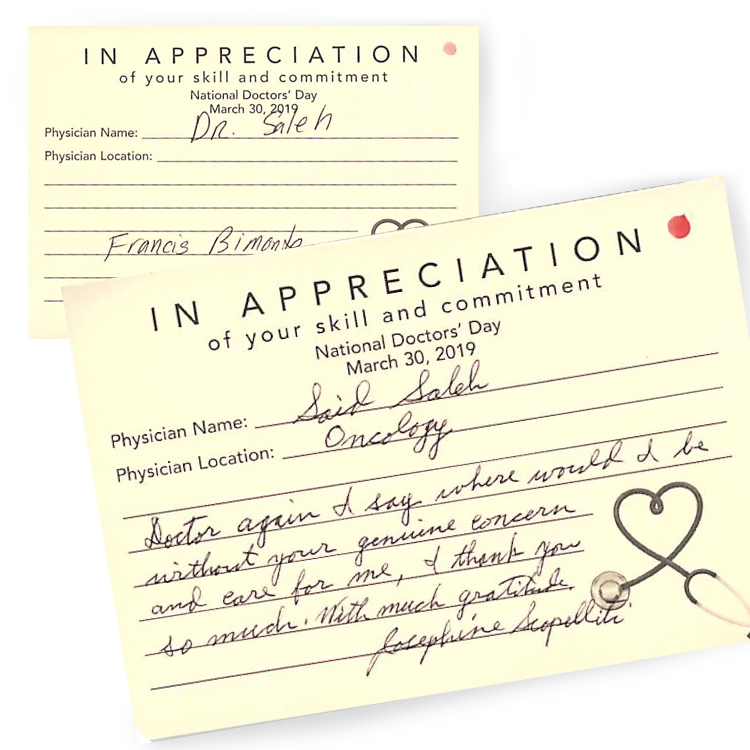 IN APPRECIATION
of your skill and commitment
National Doctors' Day
March 30, 2019
Physician Name: Dr. Saleh
Physician Location:
Francis Bimonte
IN APPRECIATION
of your skill and commitment
National Doctors' Day
March 30, 2019
Physician Name: Said Saleh
Physician Location: Oncology
Doctor again I say where would I be
without your genuine concern
and care for me, I thank you
so much. With much gratitude.
Josephine Scopelliti